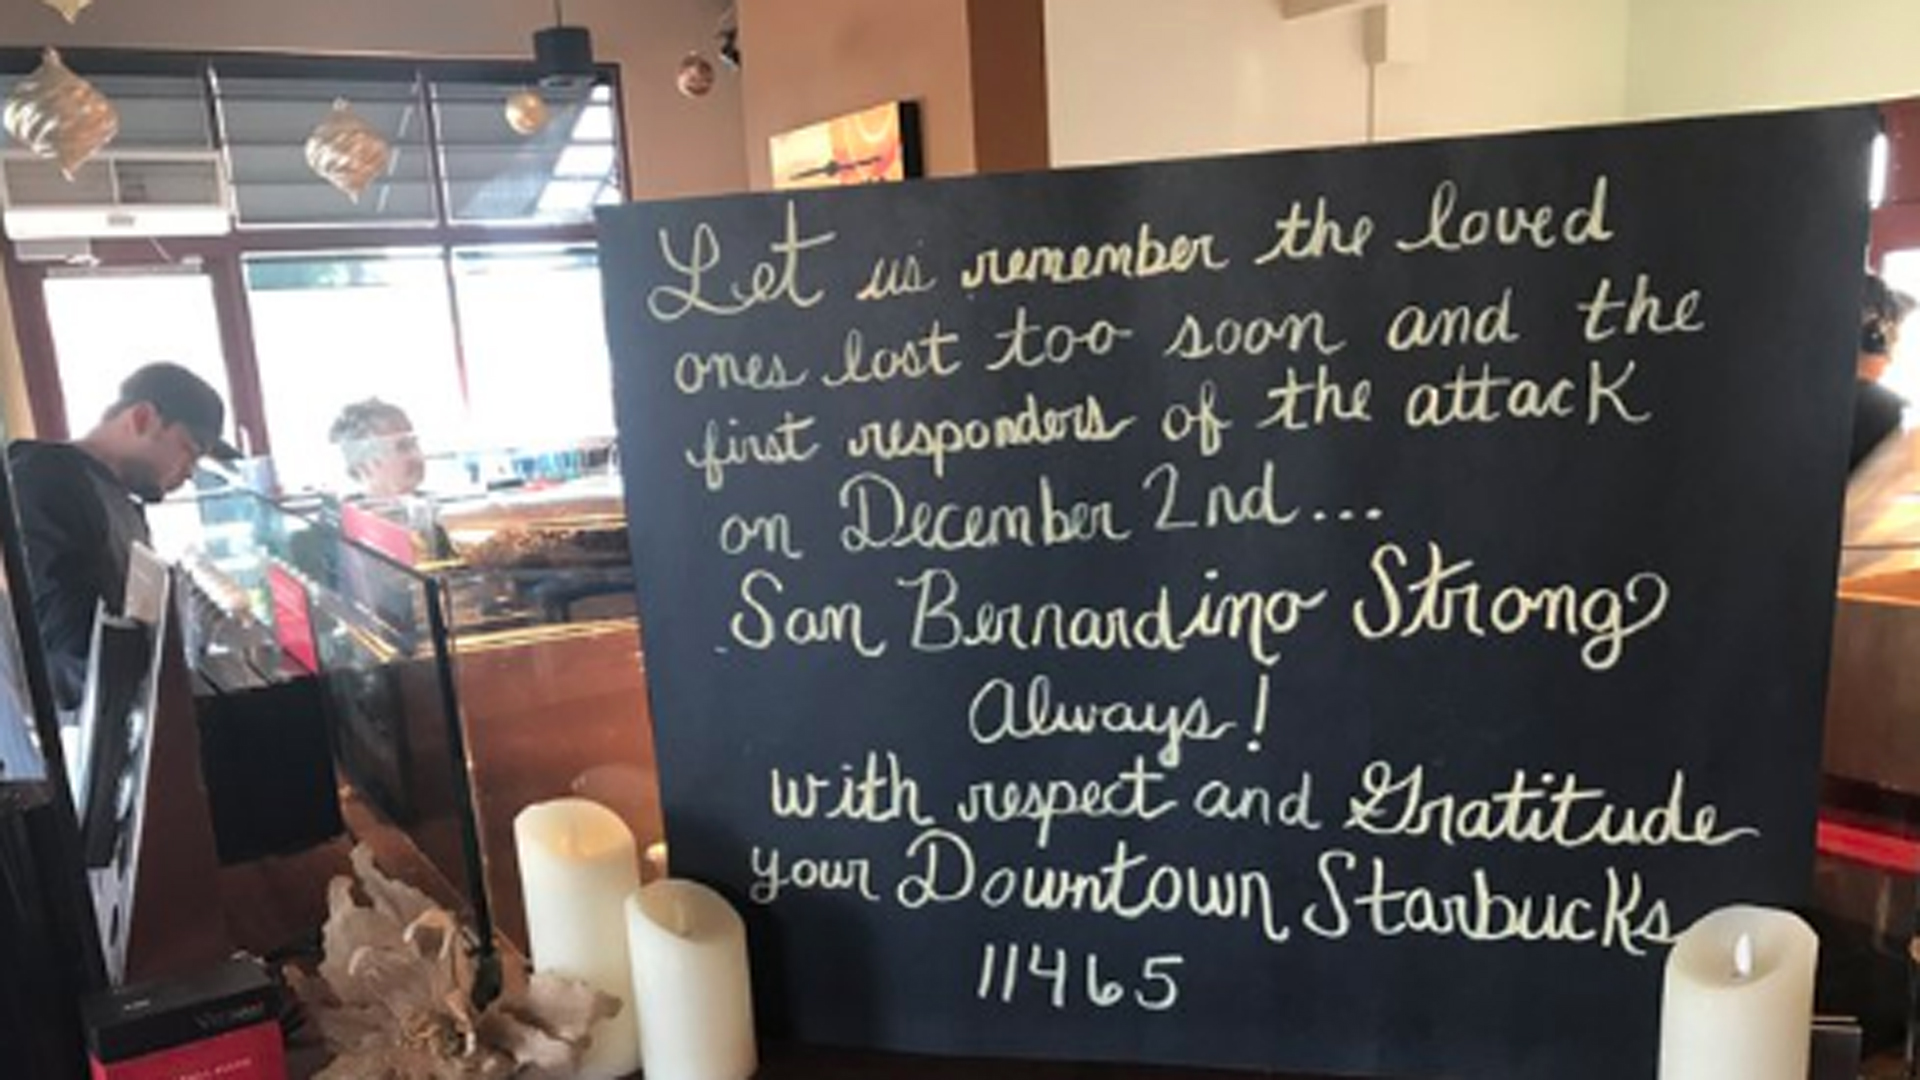 Let us remember the loved
ones lost too soon and the
first responders of the attack
on December 2nd...
San Bernardino Strong
Always!
with respect and Gratitude
your Downtown Starbucks
11465